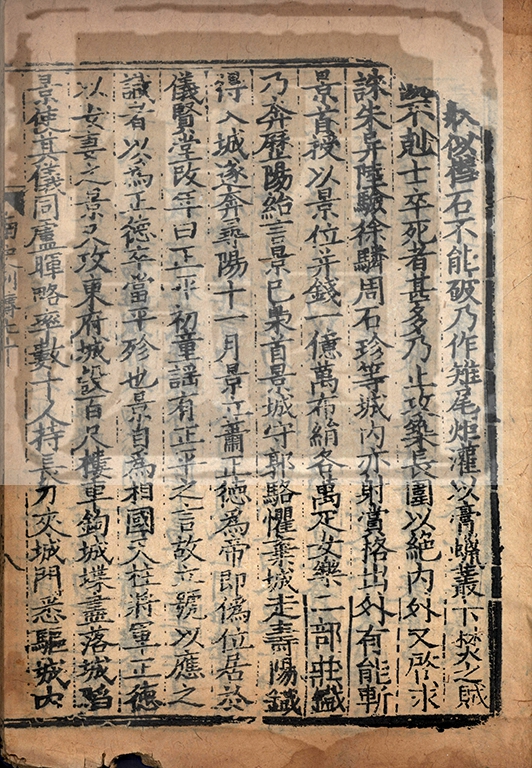 狀似槥石不能破乃作雉尾炬灌以膏蠟叢下焚之賊
既不剋士卒死者甚多乃止攻築長圍以絕内外又啓求
誅朱异陸驗徐驎周石珍等城内亦射賞格出外有能斬
景首授以景位并錢一億萬布絹各萬疋女樂二部莊鐵
乃奔歷陽紿言景已梟首景城守郭駱懼棄城走壽陽鐵
得入城遂奔尋陽十一月景立蕭正德為帝即偽位居於
儀賢堂改年曰正平初童謡有正平之言故立號以應之
識者以為正德卒當平殄也景自為相國天柱將軍正德
以女妻之景又攻東府城設百尺樓車鉤城堞盡落城陷
景使其儀同盧暉略率數千人持長刀夾城門悉驅城内
八